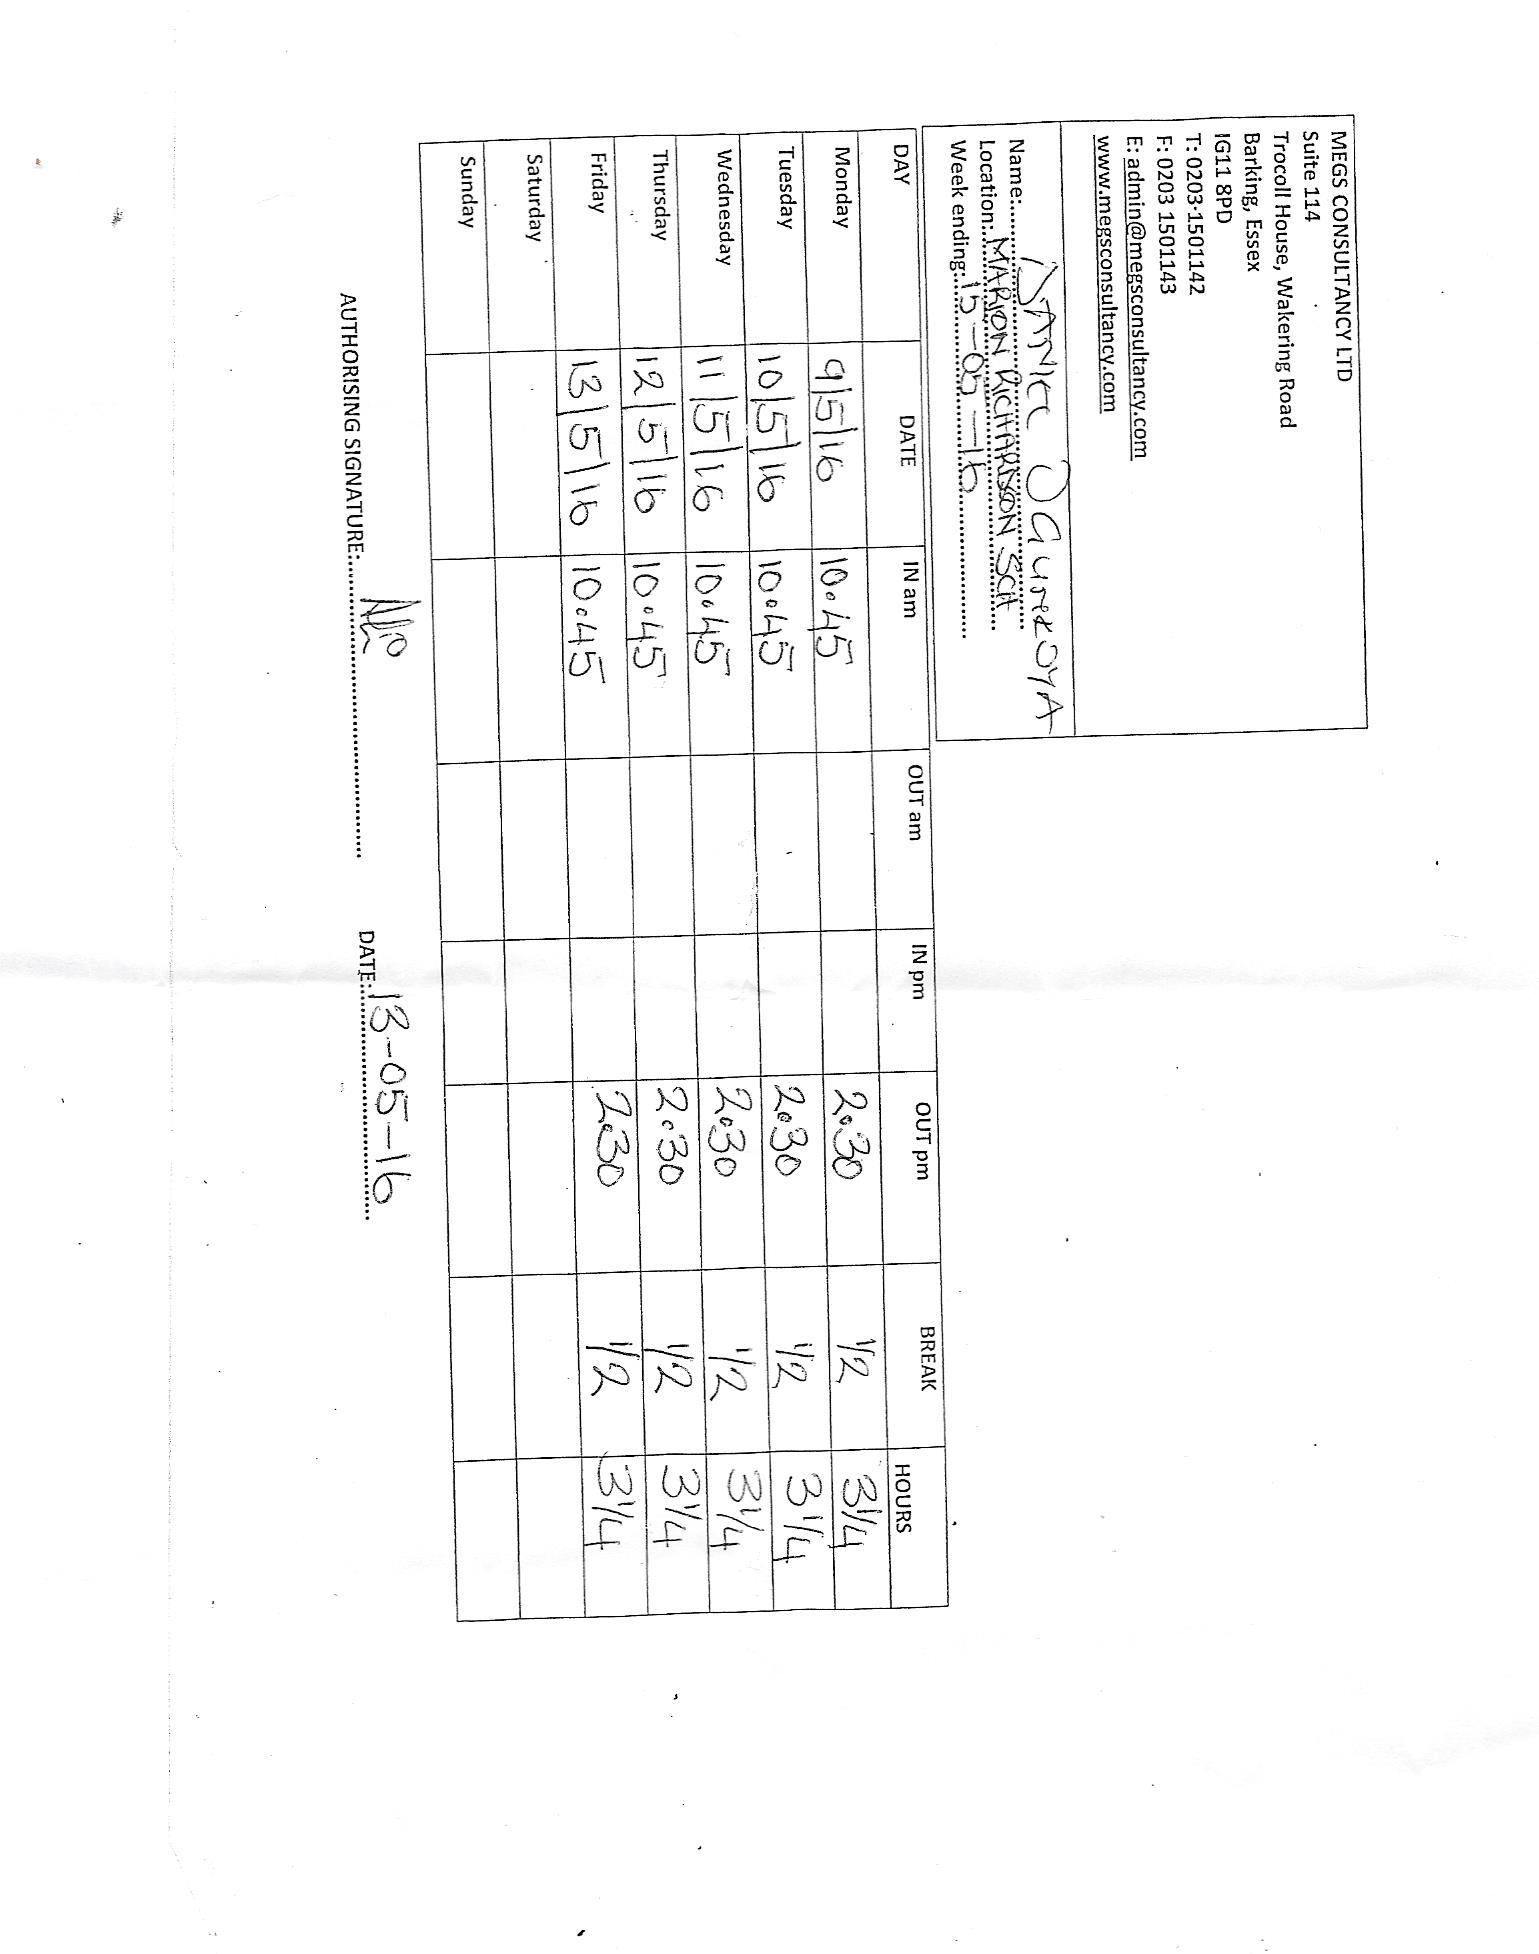 MEGS CONSULTANCY LTD
Suite 114
Trocoll House, Wakering Road
Barking, Essex
IG11 8PD
T: 0203-1501142
F: 0203 1501143
E: admin@megsconsultancy.com
www.megsconsultancy.com
Name:
Location: MARION RICHARDSON SCH
Week ending: 15-05-16
DAY DATE IN am OUT am IN pm OUT pm BREAK HOURS
Monday 9/5/16 10.45 2.30 1/2 3 1/4
Tuesday 10/5/16 10.45 2.30 1/2 3 1/4
Wednesday 11/5/16 10.45 2.30 1/2 3 1/4
Thursday 12/5/16 10.45 2.30 1/2 3 1/4
Friday 13/5/16 10.45 2.30 1/2 3 1/4
Saturday
Sunday
AUTHORISING SIGNATURE: DATE: 13-05-16